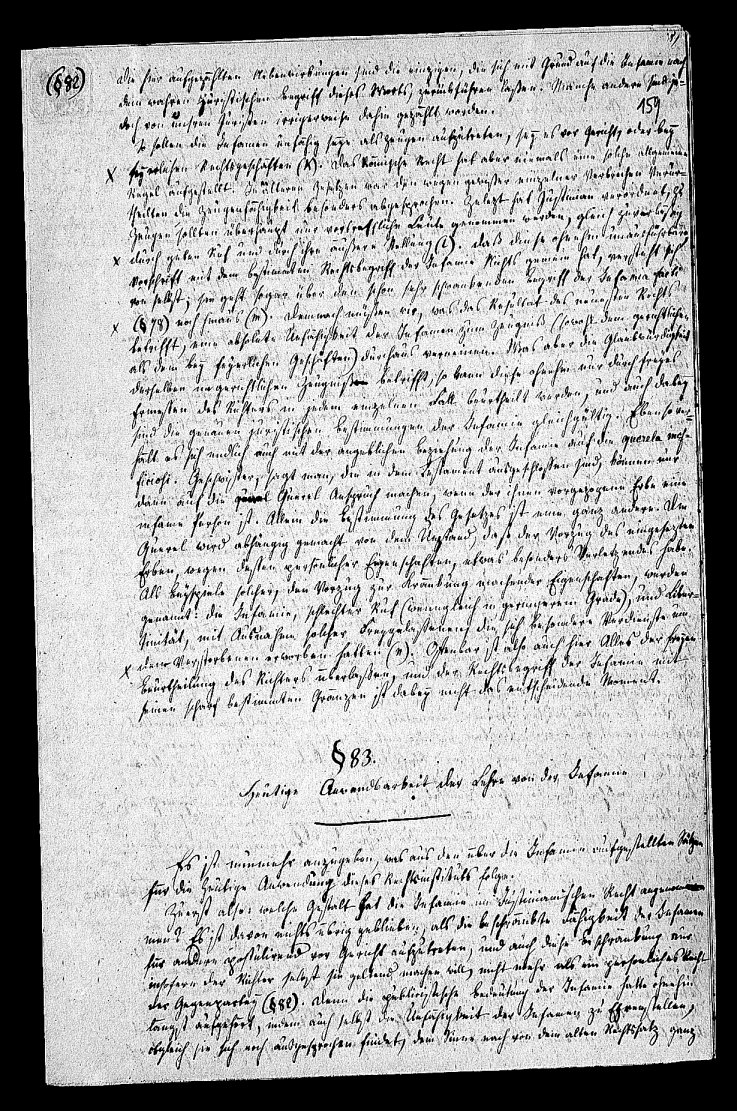 (§ 82)
Die hier aufgezählten Nebenwirkungen sind die einzigen, die sich mit Grund auf die Infamie nach
dem wahren juristischen Begriff dieses Worts, zurückführen lassen. Manche andere sind je-
doch von unsren Juristen irrigerweise dahin gezählt worden.
159
So sollen die Infamen unfähig seyn als Zeugen aufzutreten, sey es vor Gericht, oder bey
X feyerlichen Rechtsgeschäften (k). Das Römische Recht hat aber niemals eine solche allgemeine
Regel aufgestellt. In älteren Gesetzen war den wegen gewisser einzelner Verbrechen Verur-
theilten die Zeugenfähigkeit besonders abgesprochen. Zuletzt hat Justinian verordnet, zu
Zeugen sollten überhaupt nur vortreffliche Leute genommen werden, gleich zuverlässig
x durch guten Ruf und durch ihre äußere Stellung (l). Daß diese ohnehin unausführbare
Vorschrift mit dem bestimmten Rechtsbegriff der Infamie Nichts gemein hat, versteht sich
von selbst; sie geht sogar über den schon sehr schwankenden Begriff der Infamia facti
x (§ 78) noch hinaus (m). Demnach müssen wir, was das Resultat des neuesten Rechts
betrifft, eine absolute Unfähigkeit der Infamen zum Zeugniß (sowohl dem gerichtlichen
als dem bey feyerlichen Geschäften) durchaus verneinen. Was aber die Glaubwürdigkeit
derselben im gerichtlichen Zeugniß betrifft, so kann diese ohnehin nur durch freyes
Ermessen des Richters in jedem einzelnen Fall beurtheilt werden, und auch dabey
sind die genauen juristischen Bestimmungen der Infamie gleichgültig. Ebenso ver-
hält es sich endlich auch mit der angeblichen Beziehung der Infamie auf die querela inof-
ficiosi. Geschwister, sagt man, die in dem Testament ausgeschlossen sind, können nur
dann auf die Querel Anspruch machen, wenn der ihnen vorgezogene Erbe eine
infame Person ist. Allein die Bestimmung des Gesetzes ist eine ganz andere. Die
Querel wird abhängig gemacht von dem Umstand, daß der Vorzug des eingesetzten
Erben, wegen dessen persönlicher Eigenschaften, etwas besonders Verletzendes habe.
Als Beyspiele solcher, den Vorzug zur Kränkung machender Eigenschaften, werden
genannt: die Infamie, schlechter Ruf (wenngleich in geringerem Grade), und Liber-
tinität, mit Ausnahme solcher Freygelassenen, die sich besondere Verdienste um
x den Verstorbenen erworben hatten (n). Offenbar ist also auch hier Alles der freyen
Beurtheilung des Richters überlassen, und der Rechtsbegriff der Infamie mit
seinen scharf bestimmten Gränzen ist dabey nicht das entscheidende Moment.
§ 83.
Heutige Anwendbarkeit der Lehre von der Infamie
Es ist nunmehr anzugeben, was aus den über die Infamie aufgestellten Sätzen
für die heutige Anwendung dieses Rechtsinstituts folge.
Zuerst also: welche Gestalt hat die Infamie im Justinianischen Recht angenom-
men? Es ist davon nichts übrig geblieben, als die beschränkte Fähigkeit der Infamen
für andere postulirend vor Gericht aufzutreten, und auch diese Beschränkung nur
insofern der Richter selbst sie geltend machen will, nicht mehr als ein persönliches Recht
der Gegenpartey (§ 82). Denn die publicistische Bedeutung der Infamie hatte ohnehin
längst aufgehört, indem auch selbst die Unfähigkeit der Infamen zu Ehrenstellen,
obgleich sie sich noch ausgesprochen findet, dem Sinne nach von dem alten Rechtssatz ganz